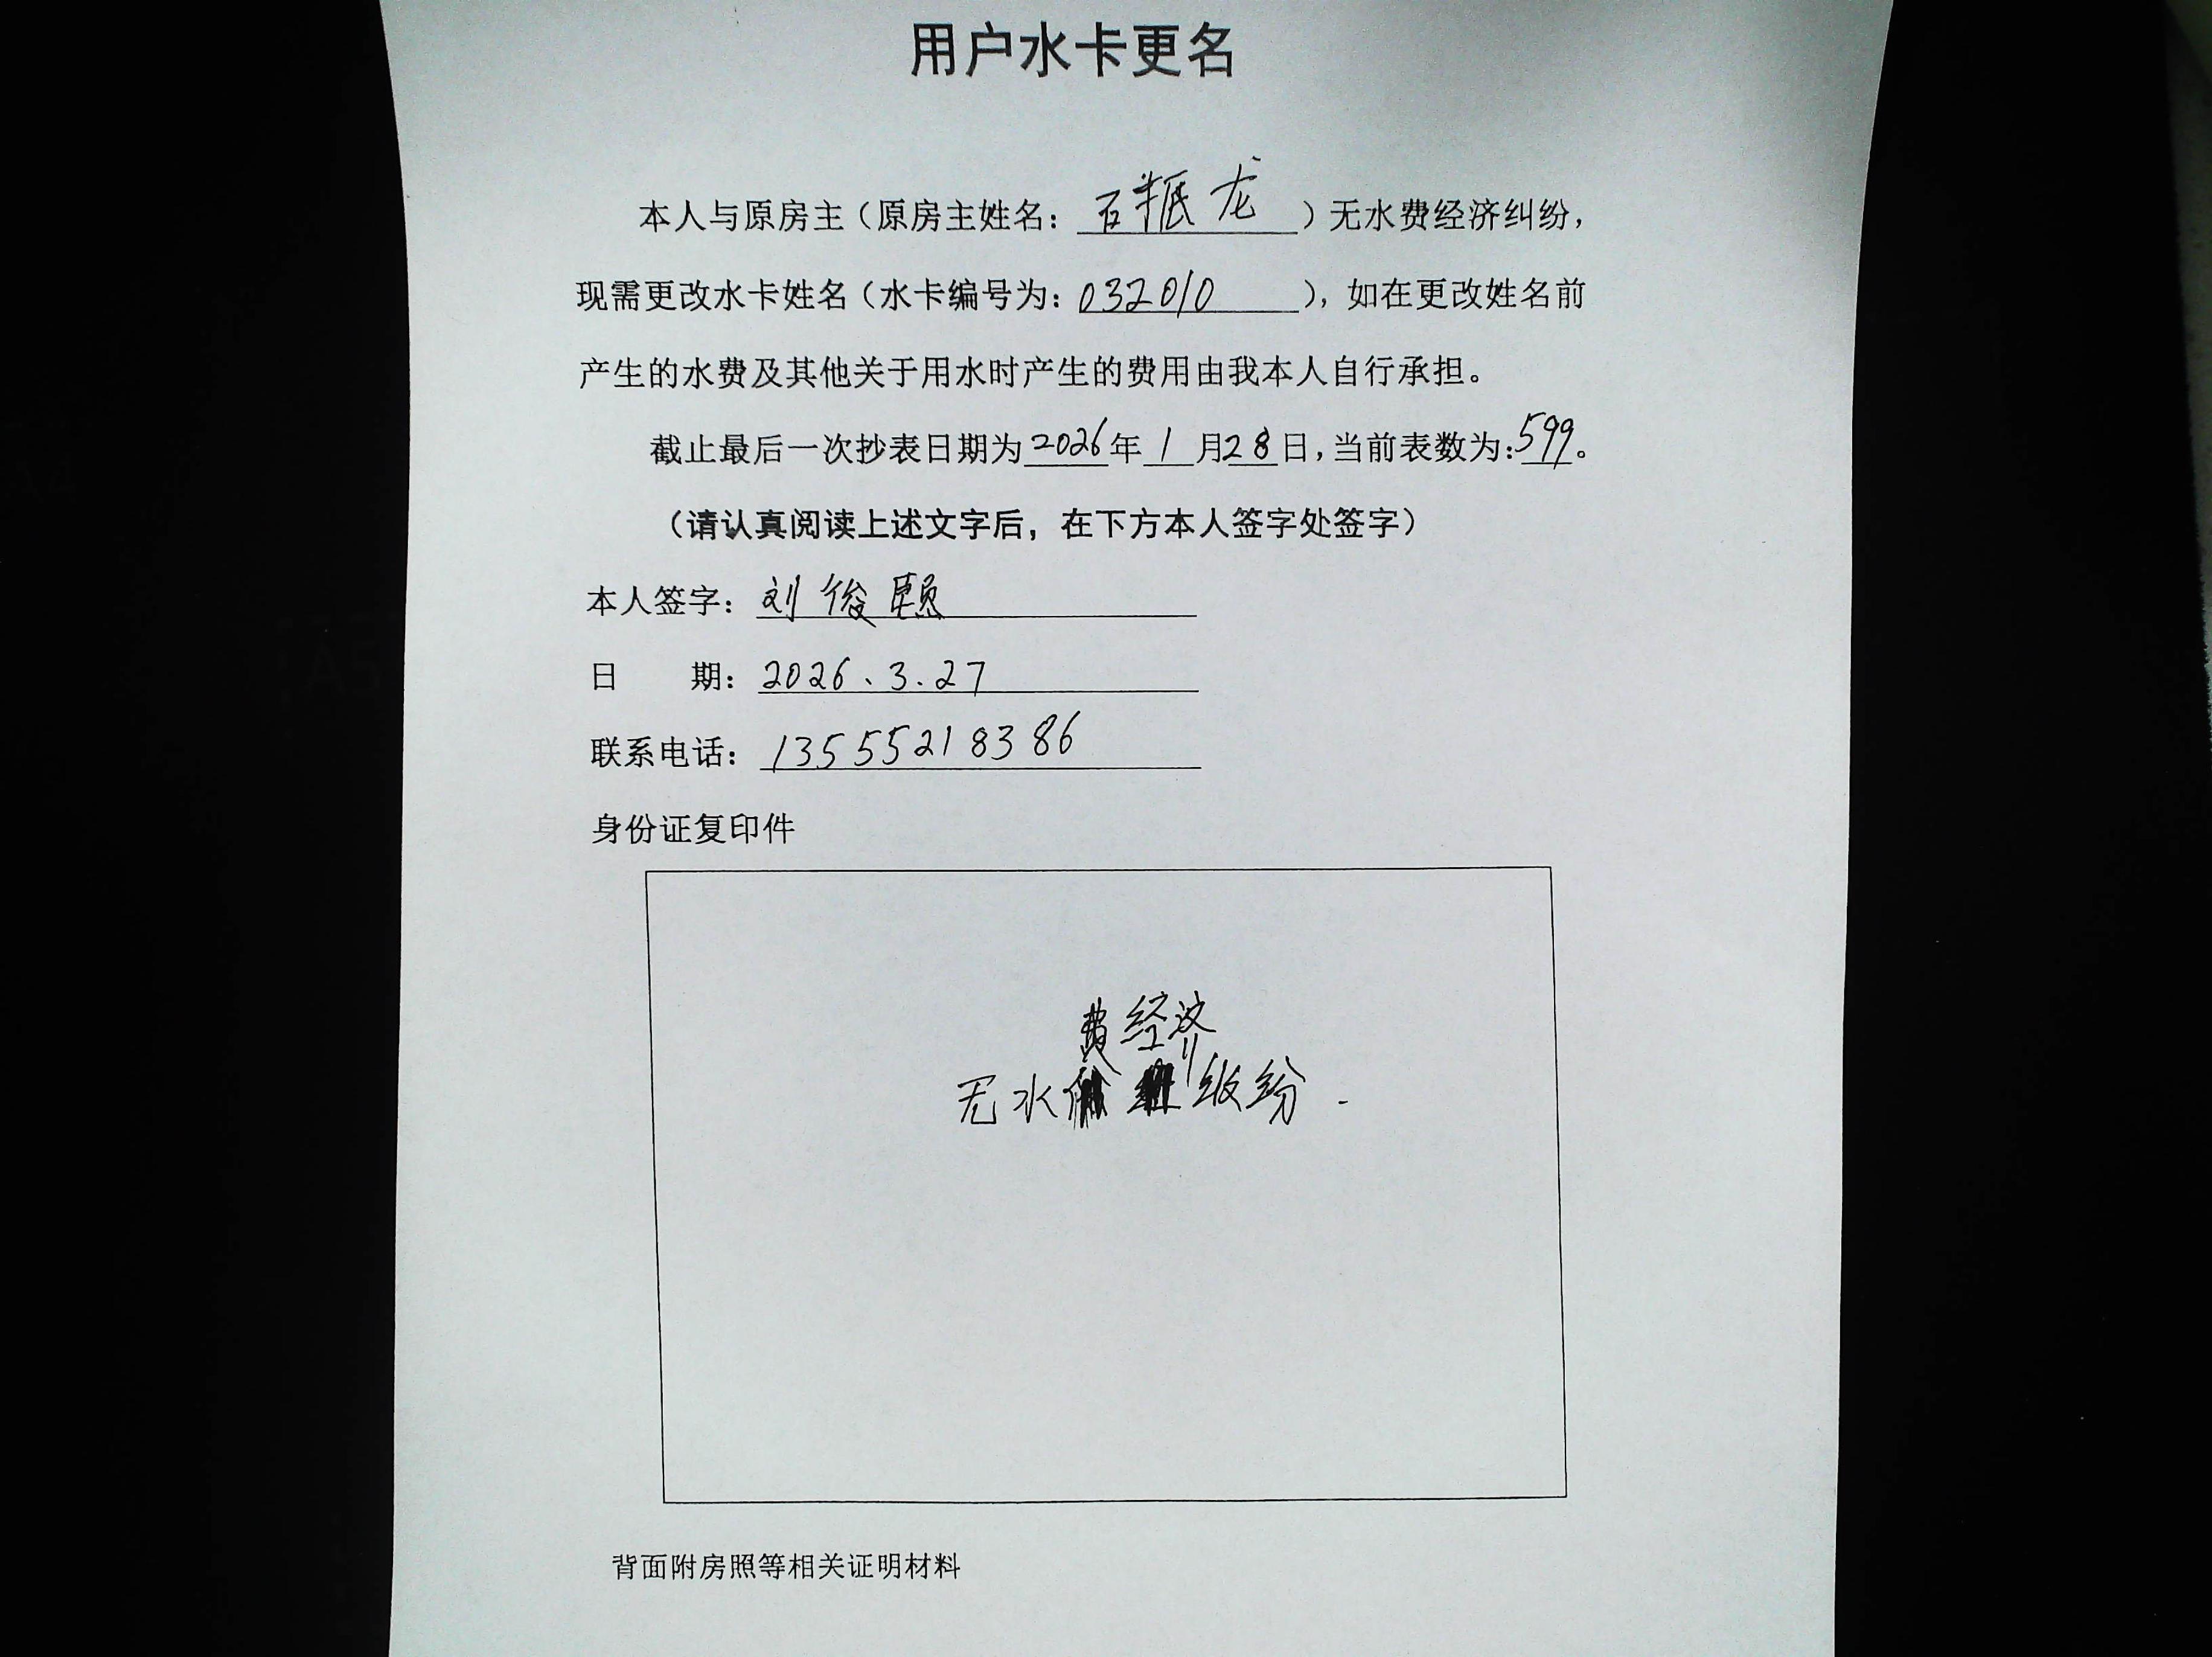 用户水卡更名
本人与原房主（原房主姓名：石振龙）无水费经济纠纷，
现需更改水卡姓名（水卡编号为：032010），如在更改姓名前
产生的水费及其他关于用水时产生的费用由我本人自行承担。
截止最后一次抄表日期为2026年1月28日，当前表数为：599。
（请认真阅读上述文字后，在下方本人签字处签字）
本人签字：刘俊颐
日 期：2026、3.27
联系电话：13555218386
身份证复印件
费经济
无水纷.
背面附房照等相关证明材料